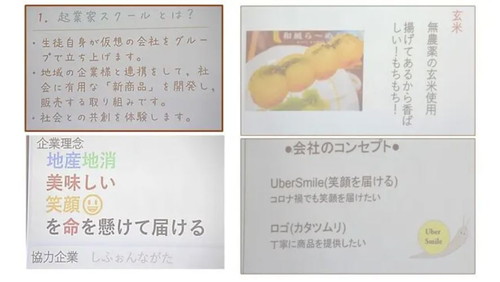 1. 起業家スクールとは?
・生徒自身が仮想の会社をグルー
プで立ち上げます。
・地域の企業様と連携をして、社
会に有用な「新商品」を開発し、
販売する取り組みです。
・社会との共創を体験します。
玄米
無農薬の玄米使用
揚げてあるから香ば
しい!もちもち!
企業理念
地産地消
美味しい
笑顔
を命を懸けて届ける
協力企業 しふぉんながた
●会社のコンセプト●
UberSmile(笑顔を届ける)
コロナ禍でも笑顔を届けたい
ロゴ(カタツムリ)
丁寧に商品を提供したい
Uber
Smile